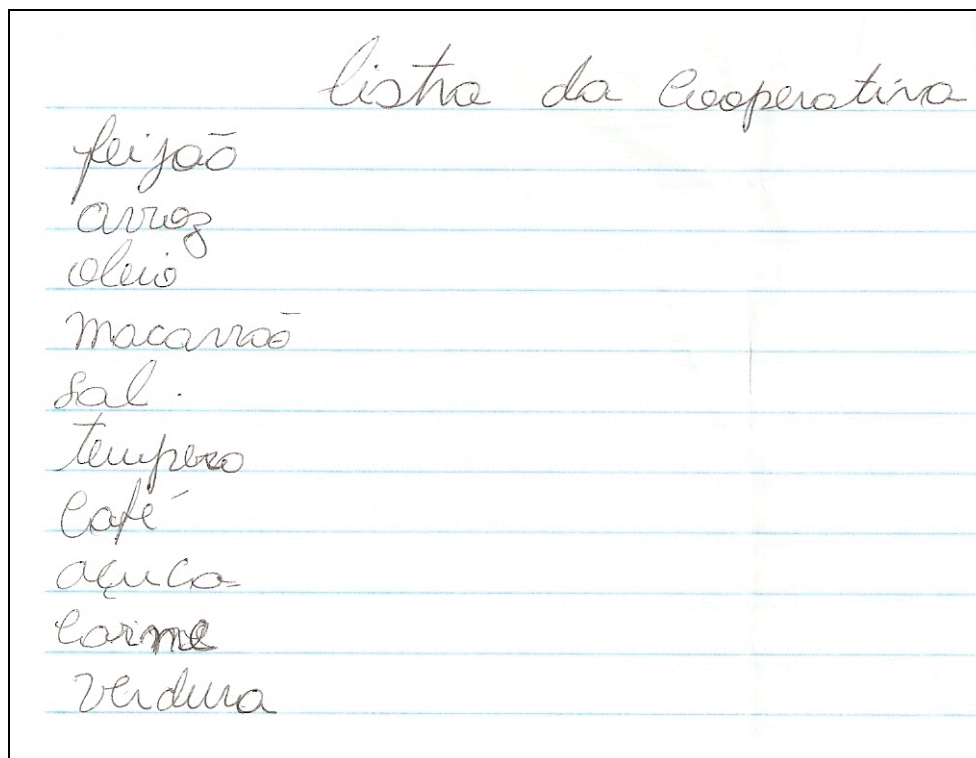 listra da Cooperativa
feijão
arroz
oleio
macarrão
sal.
tempero
Café
açuca
Carme
verdura